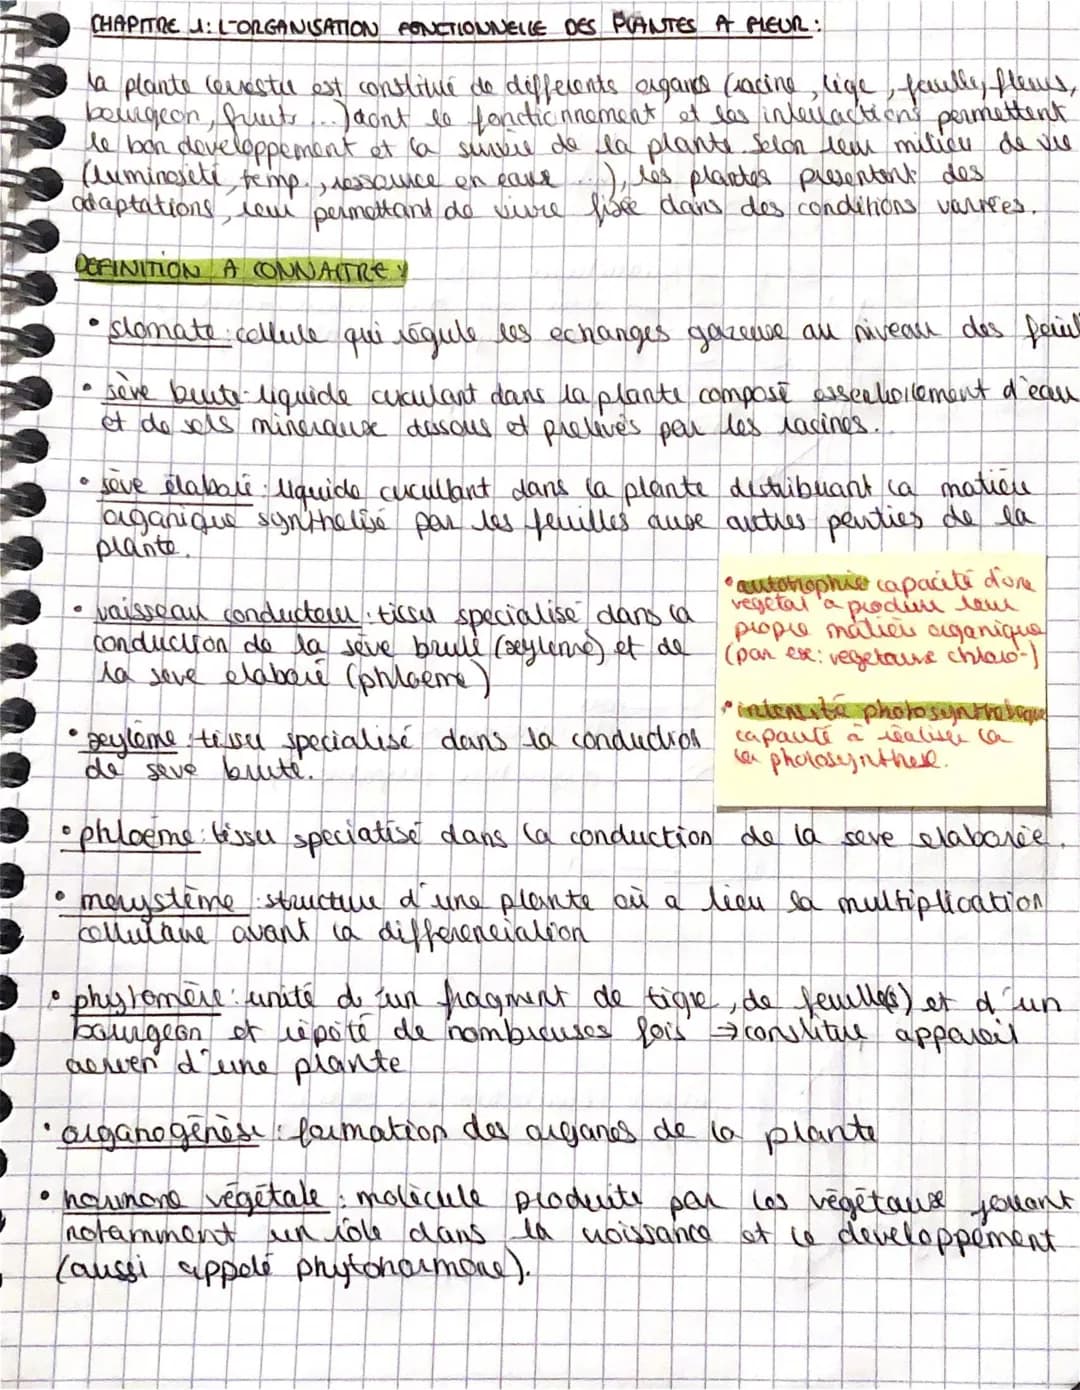 CHAPITRE 1: L'ORGANISATION FONCTIONNELLE DES PLANTES A FLEUR:
la plante terrestre est constitué de differents organes (racine, tige, feuille, fleurs,
bourgeon, fruits ...) dont le fonctionnement et les interactions permettent
le bon developpement et la survie de la plante. Selon leur milieu de vie
(luminosité, temp., ressource en eaux ...), les plantes presentent des
adaptations, leur permettant de vivre fixée dans des conditions variées.
DEFINITION A CONNAITRE:
• stomate: cellule qui régule les echanges gazeuse au niveau des feuil
• sève brute: liquide circulant dans la plante composé essentiellement d'eau
et de sels mineraux dissous et prélevés par les racines.
• sève élaboré: liquide circullant dans la plante distribuant la matière
organique synthétisé par les feuilles aux autres parties de la
plante.
• vaisseau conducteur: tissu specialisé dans la
conduction de la sève brute (xylème) et de
la seve elaboré (phloeme)
• xylème: tissu specialisé dans la conduction
de seve brute.
• autotrophie capacité d'une
vegetal a produire leur
propre matière organique
(par ex: vegetaux chloro-)
• intensité photosynthétique
capacité à réaliser la
la photosynthese.
• phloème: tissu specialisé dans la conduction de la seve elaborée.
• merystème: structure d'une plante où a lieu la multiplication
cellulaire avant la différenciation
• phytomère: unité d'un fragment de tige, de feuille(s) et d'un
bourgeon et répété de nombreuses fois → constitue appareil
aerien d'une plante
• organogénèse: formation des organes de la plante
• hormone végétale: molécule produite par les végétaux jouant
notamment un rôle dans la croissance et le developpement
(aussi appelé phytohormone).